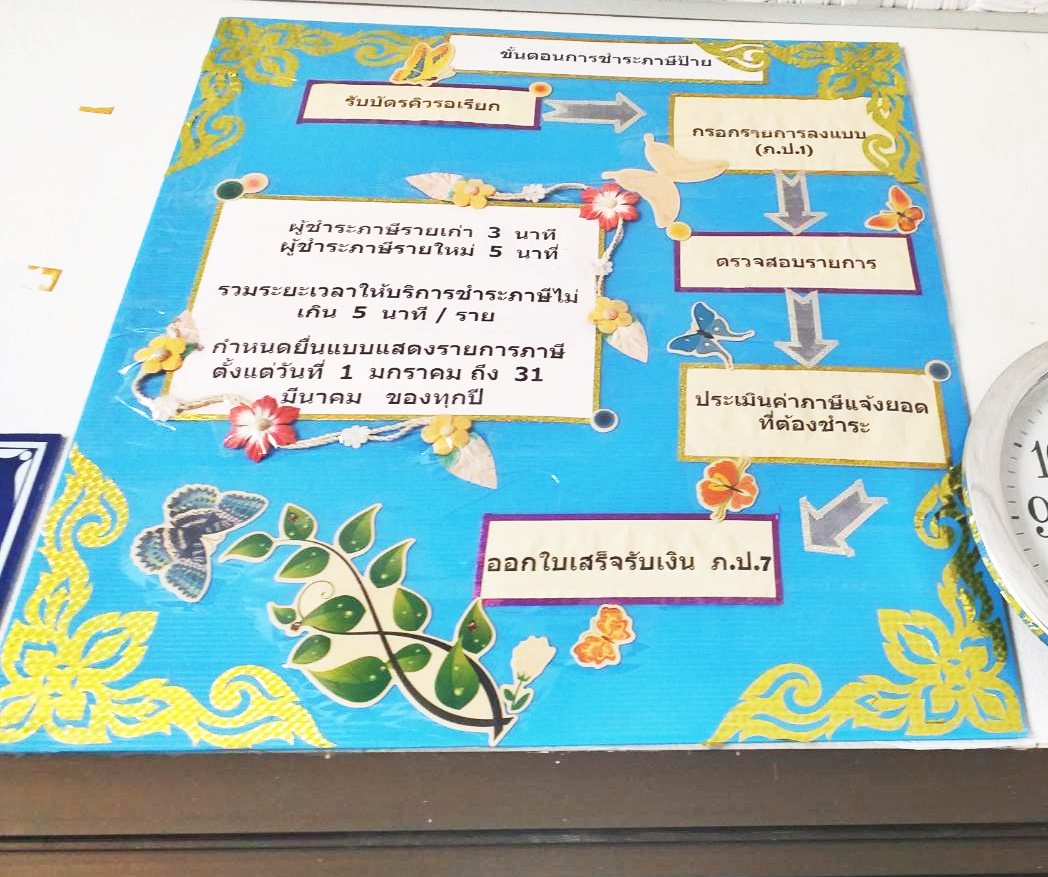 ขั้นตอนการชำระภาษีป้าย
รับบัตรคิวรอเรียก
กรอกรายการลงแบบ
(ภ.ป.1)
ตรวจสอบรายการ
ประเมินค่าภาษีแจ้งยอด
ที่ต้องชำระ
ออกใบเสร็จรับเงิน ภ.ป.7
ผู้ชำระภาษีรายเก่า 3 นาที
ผู้ชำระภาษีรายใหม่ 5 นาที
รวมระยะเวลาให้บริการชำระภาษีไม่
เกิน 5 นาที / ราย
กำหนดยื่นแบบแสดงรายการภาษี
ตั้งแต่วันที่ 1 มกราคม ถึง 31
มีนาคม ของทุกปี
10
9